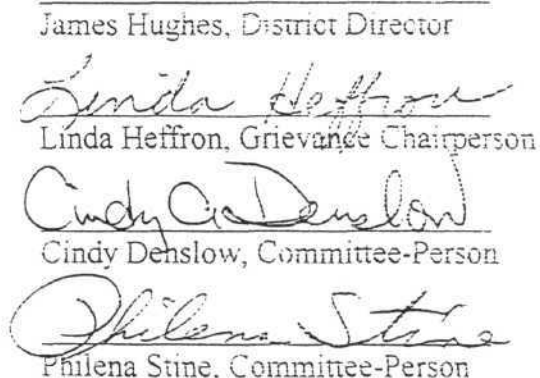 James Hughes, District Director
Linda Heffron
Linda Heffron, Grievance Chairperson
Cindy A Denslow
Cindy Denslow, Committee-Person
Philena Stine
Philena Stine, Committee-Person